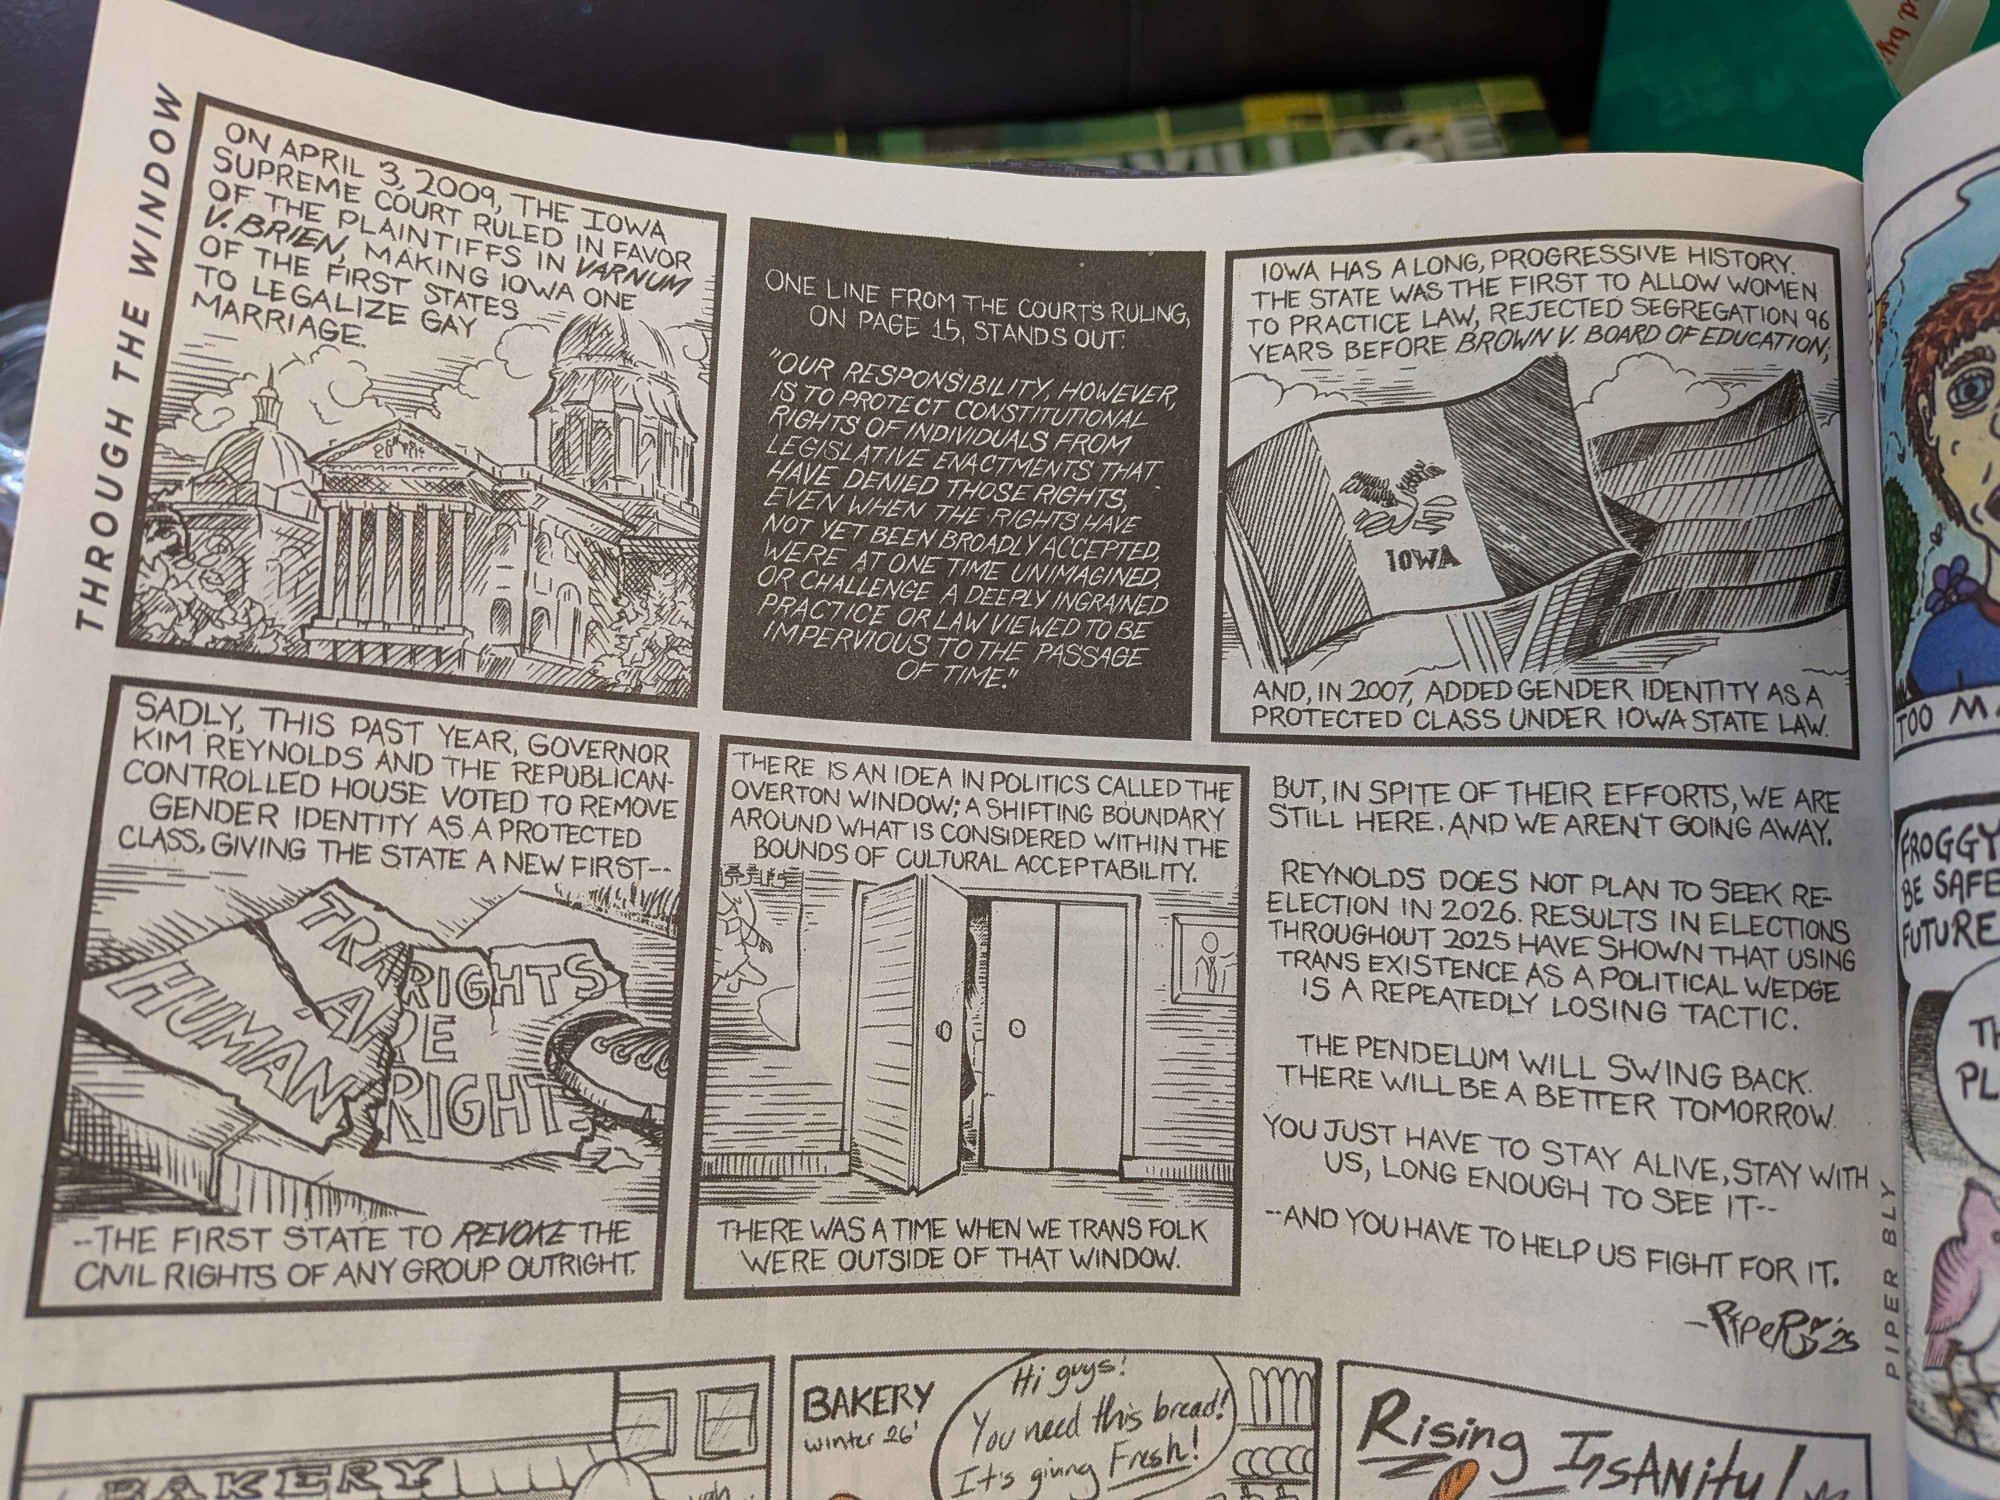 THROUGH THE WINDOW
ON APRIL 3, 2009, THE IOWA
SUPREME COURT RULED IN FAVOR
OF THE PLAINTIFFS IN VARNUM
V. BRIEN, MAKING IOWA ONE
OF THE FIRST STATES
TO LEGALIZE GAY
MARRIAGE.
ONE LINE FROM THE COURT'S RULING,
ON PAGE 15, STANDS OUT:
"OUR RESPONSIBILITY, HOWEVER,
IS TO PROTECT CONSTITUTIONAL
RIGHTS OF INDIVIDUALS FROM
LEGISLATIVE ENACTMENTS THAT
HAVE DENIED THOSE RIGHTS,
EVEN WHEN THE RIGHTS HAVE
NOT YET BEEN BROADLY ACCEPTED,
WERE AT ONE TIME UNIMAGINED,
OR CHALLENGE A DEEPLY INGRAINED
PRACTICE OR LAW VIEWED TO BE
IMPERVIOUS TO THE PASSAGE
OF TIME."
IOWA HAS A LONG, PROGRESSIVE HISTORY.
THE STATE WAS THE FIRST TO ALLOW WOMEN
TO PRACTICE LAW, REJECTED SEGREGATION 96
YEARS BEFORE BROWN V. BOARD OF EDUCATION;
IOWA
AND, IN 2007, ADDED GENDER IDENTITY AS A
PROTECTED CLASS UNDER IOWA STATE LAW.
SADLY, THIS PAST YEAR, GOVERNOR
KIM REYNOLDS AND THE REPUBLICAN-
CONTROLLED HOUSE VOTED TO REMOVE
GENDER IDENTITY AS A PROTECTED
CLASS, GIVING THE STATE A NEW FIRST--
TRA RIGHTS
ARE
HUMAN RIGHT
--THE FIRST STATE TO REVOKE THE
CIVIL RIGHTS OF ANY GROUP OUTRIGHT.
THERE IS AN IDEA IN POLITICS CALLED THE
OVERTON WINDOW; A SHIFTING BOUNDARY
AROUND WHAT IS CONSIDERED WITHIN THE
BOUNDS OF CULTURAL ACCEPTABILITY.
THERE WAS A TIME WHEN WE TRANS FOLK
WERE OUTSIDE OF THAT WINDOW.
BUT, IN SPITE OF THEIR EFFORTS, WE ARE
STILL HERE. AND WE AREN'T GOING AWAY.
REYNOLDS DOES NOT PLAN TO SEEK RE-
ELECTION IN 2026. RESULTS IN ELECTIONS
THROUGHOUT 2025 HAVE SHOWN THAT USING
TRANS EXISTENCE AS A POLITICAL WEDGE
IS A REPEATEDLY LOSING TACTIC.
THE PENDELUM WILL SWING BACK.
THERE WILL BE A BETTER TOMORROW.
YOU JUST HAVE TO STAY ALIVE, STAY WITH
US, LONG ENOUGH TO SEE IT--
--AND YOU HAVE TO HELP US FIGHT FOR IT.
-PIPER '25
PIPER BLY
BAKERY
BAKERY
winter 26'
Hi guys!
You need this bread!
It's giving Fresh!
Rising InsANity!
TOO MA
FROGGY
BE SAFE
FUTURE
TH
PL
VILLAGE